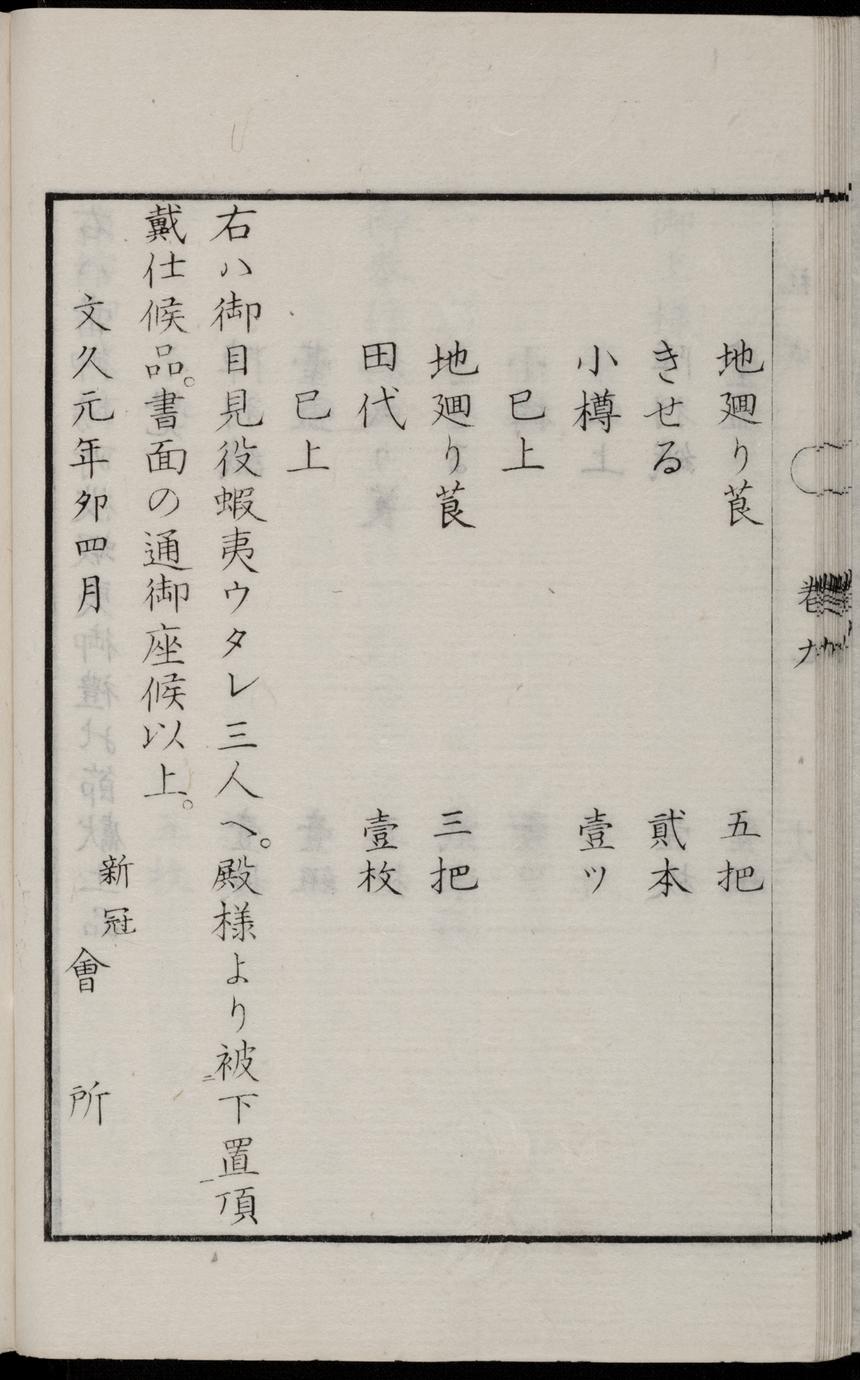 地廻り莨　五把
きせる　貳本
小樽　壹ツ
巳上
地廻り莨　三把
田代　壹枚
巳上
右ハ御目見役蝦夷ウタレ三人へ。殿様より被下置頂
戴仕候品。書面の通御座候以上。
文久元年夘四月
新冠
會所